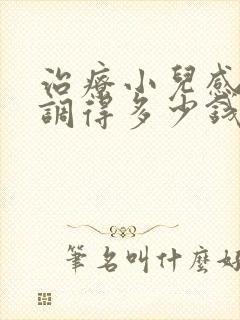 治療小兒感
調得多少錢
筆名叫什麼好